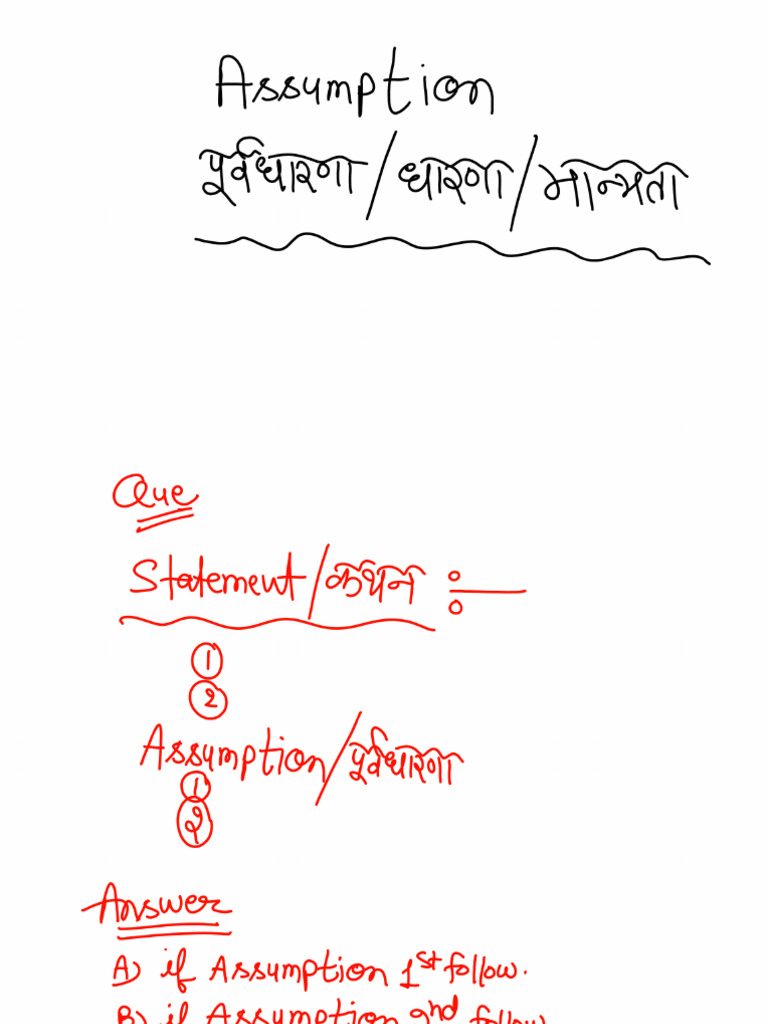 Assumption
पूर्वधारणा/धारणा/मान्यता
Que
Statement/कथन :-
①
②
Assumption/पूर्वधारणा
①
②
Answer
A) if Assumption 1st follow.
B) if Assumption 2nd follow